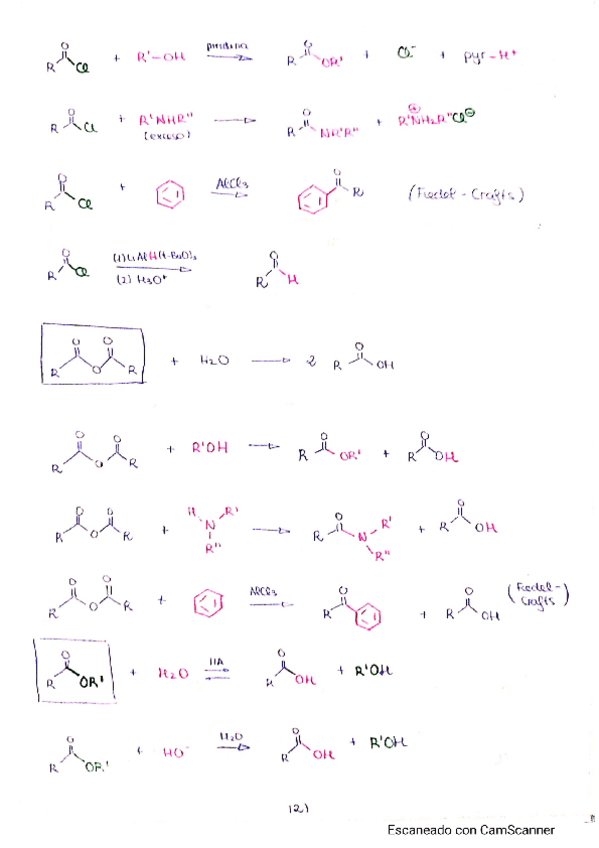 R O Cl + R'-OH piridina R O OR' + Cl⁻ + pyr-H⁺
R O Cl + R'NHR'' (exceso) R O NR'R'' + R'NH₂R''⊕ Cl⊖
R O Cl + AlCl₃ O R (Fiedel-Crafts)
R O Cl (1) LiAlH(t-BuO)₃ (2) H₃O⁺ R O H
R O O O R + H₂O 2 R O OH
R O O O R + R'OH R O OR' + R O OH
R O O O R + H N R' R'' R O N R' R'' + R O OH
R O O O R + AlCl₃ R O + R O OH (Fiedel-Crafts)
R O OR' + H₂O HA R O OH + R'OH
R O OR' + HO⁻ H₂O R O OH + R'OH
(2)
Escaneado con CamScanner